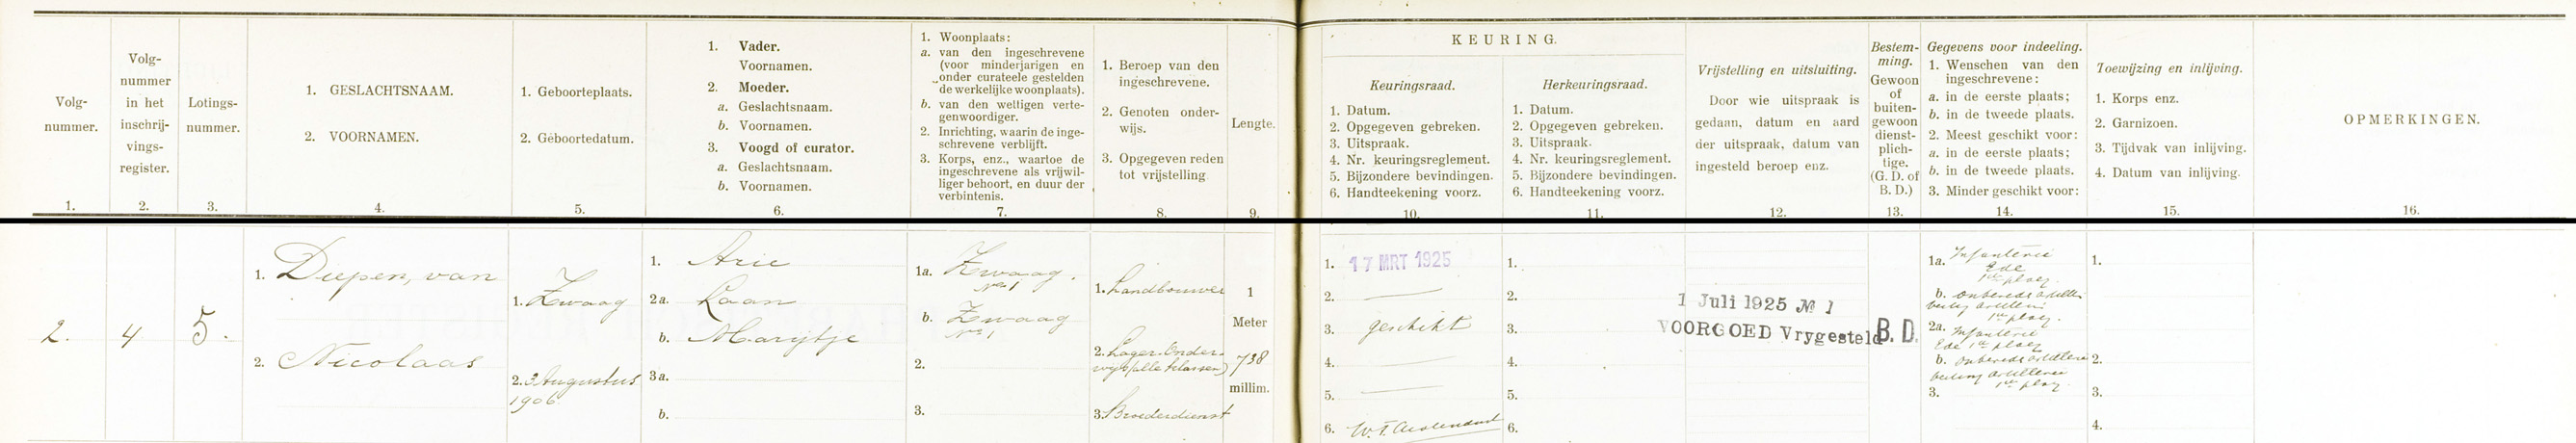 Volg-
nummer.
1.
Volg-
nummer
in het
inschrij-
vings-
register.
2.
Lotings-
nummer.
3.
1. GESLACHTSNAAM.
2. VOORNAMEN.
4.
1. Geboorteplaats.
2. Geboortedatum.
5.
1. Vader.
Voornamen.
2. Moeder.
a. Geslachtsnaam.
b. Voornamen.
3. Voogd of curator.
a. Geslachtsnaam.
b. Voornamen.
6.
1. Woonplaats:
a. van den ingeschrevene
(voor minderjarigen en
onder curateele gestelden
de werkelijke woonplaats).
b. van den wettigen verte-
genwoordiger.
2. Inrichting, waarin de inge-
schrevene verblijft.
3. Korps, enz., waartoe de
ingeschrevene als vrijwil-
liger behoort, en duur der
verbintenis.
7.
1. Beroep van den
ingeschrevene.
2. Genoten onder-
wijs.
3. Opgegeven reden
tot vrijstelling
8.
Lengte.
9.
KEURING.
Keuringsraad.
1. Datum.
2. Opgegeven gebreken.
3. Uitspraak.
4. Nr. keuringsreglement.
5. Bijzondere bevindingen.
6. Handteekening voorz.
10.
Herkeuringsraad.
1. Datum.
2. Opgegeven gebreken.
3. Uitspraak.
4. Nr. keuringsreglement.
5. Bijzondere bevindingen.
6. Handteekening voorz.
11.
Vrijstelling en uitsluiting.
Door wie uitspraak is
gedaan, datum en aard
der uitspraak, datum van
ingesteld beroep enz.
12.
Bestem-
ming.
Gewoon
of
buiten-
gewoon
dienst-
plich-
tige.
(G. D. of
B. D.)
13.
Gegevens voor indeeling.
1. Wenschen van den
ingeschrevene:
a. in de eerste plaats;
b. in de tweede plaats.
2. Meest geschikt voor:
a. in de eerste plaats;
b. in de tweede plaats.
3. Minder geschikt voor:
14.
Toewijzing en inlijving.
1. Korps enz.
2. Garnizoen.
3. Tijdvak van inlijving.
4. Datum van inlijving.
15.
OPMERKINGEN.
16.
2.
4
5.
1. Diepen, van
2. Nicolaas
1. Zwaag
2. 3 Augustus
1906
1. Arie
2a. Laan
b. Marijtje
3a.
b.
1a. Zwaag.
No 1
b. Zwaag
No 1
2.
3.
1. Landbouwer
2. Lager Onder-
wijs (alle klassen)
3. Broederdienst
1
Meter
738
millim.
1. 17 MRT 1925
2. —
3. geschikt
4. —
5. —
6. W. F.
1.
2.
3.
4.
5.
6.
1 Juli 1925 № 1
VOORGOED Vrygesteld
B. D.
1a. Infanterie
Ede
1ste ploeg
b. onbereden artillerie
1ste ploeg.
2a. Infanterie
Ede 1ste ploeg
b. onbereden artillerie
1ste ploeg.
3.
1.
2.
3.
4.